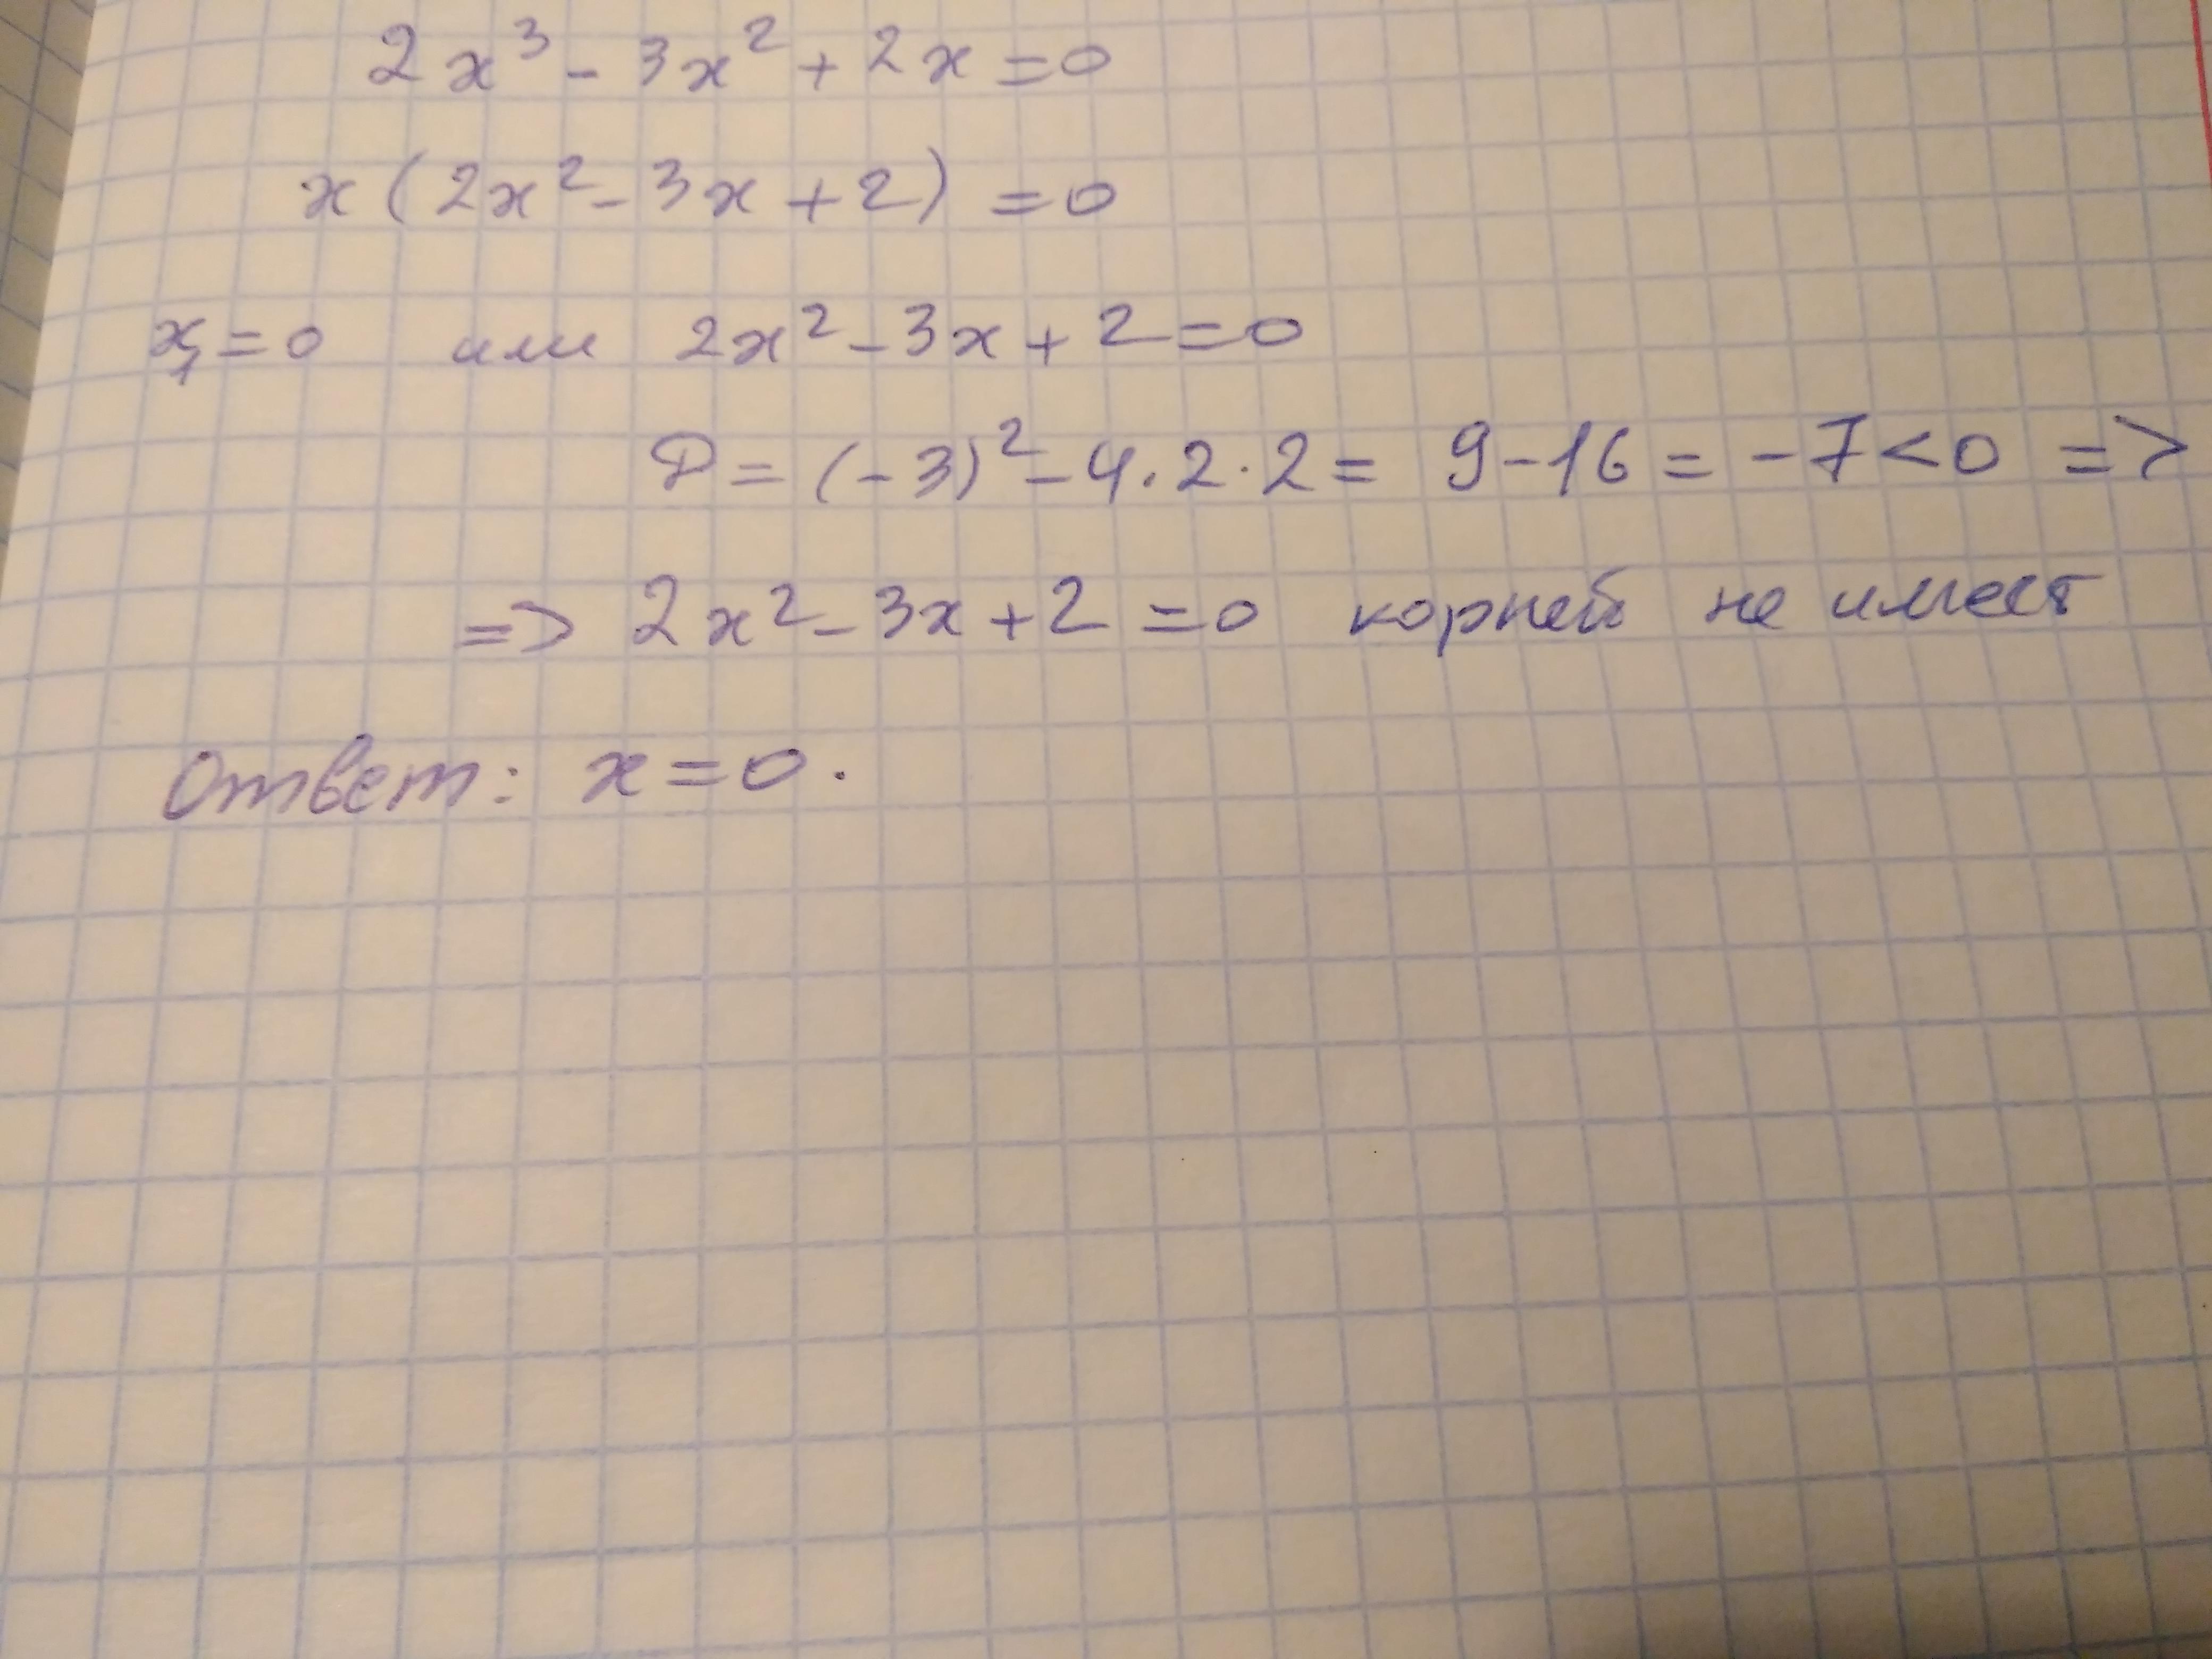 2x³ - 3x² + 2x = 0
x(2x² - 3x + 2) = 0
x₁ = 0 или 2x² - 3x + 2 = 0
D = (-3)² - 4·2·2 = 9 - 16 = -7 < 0 =>
=> 2x² - 3x + 2 = 0 корней не имеет
Ответ: x = 0.